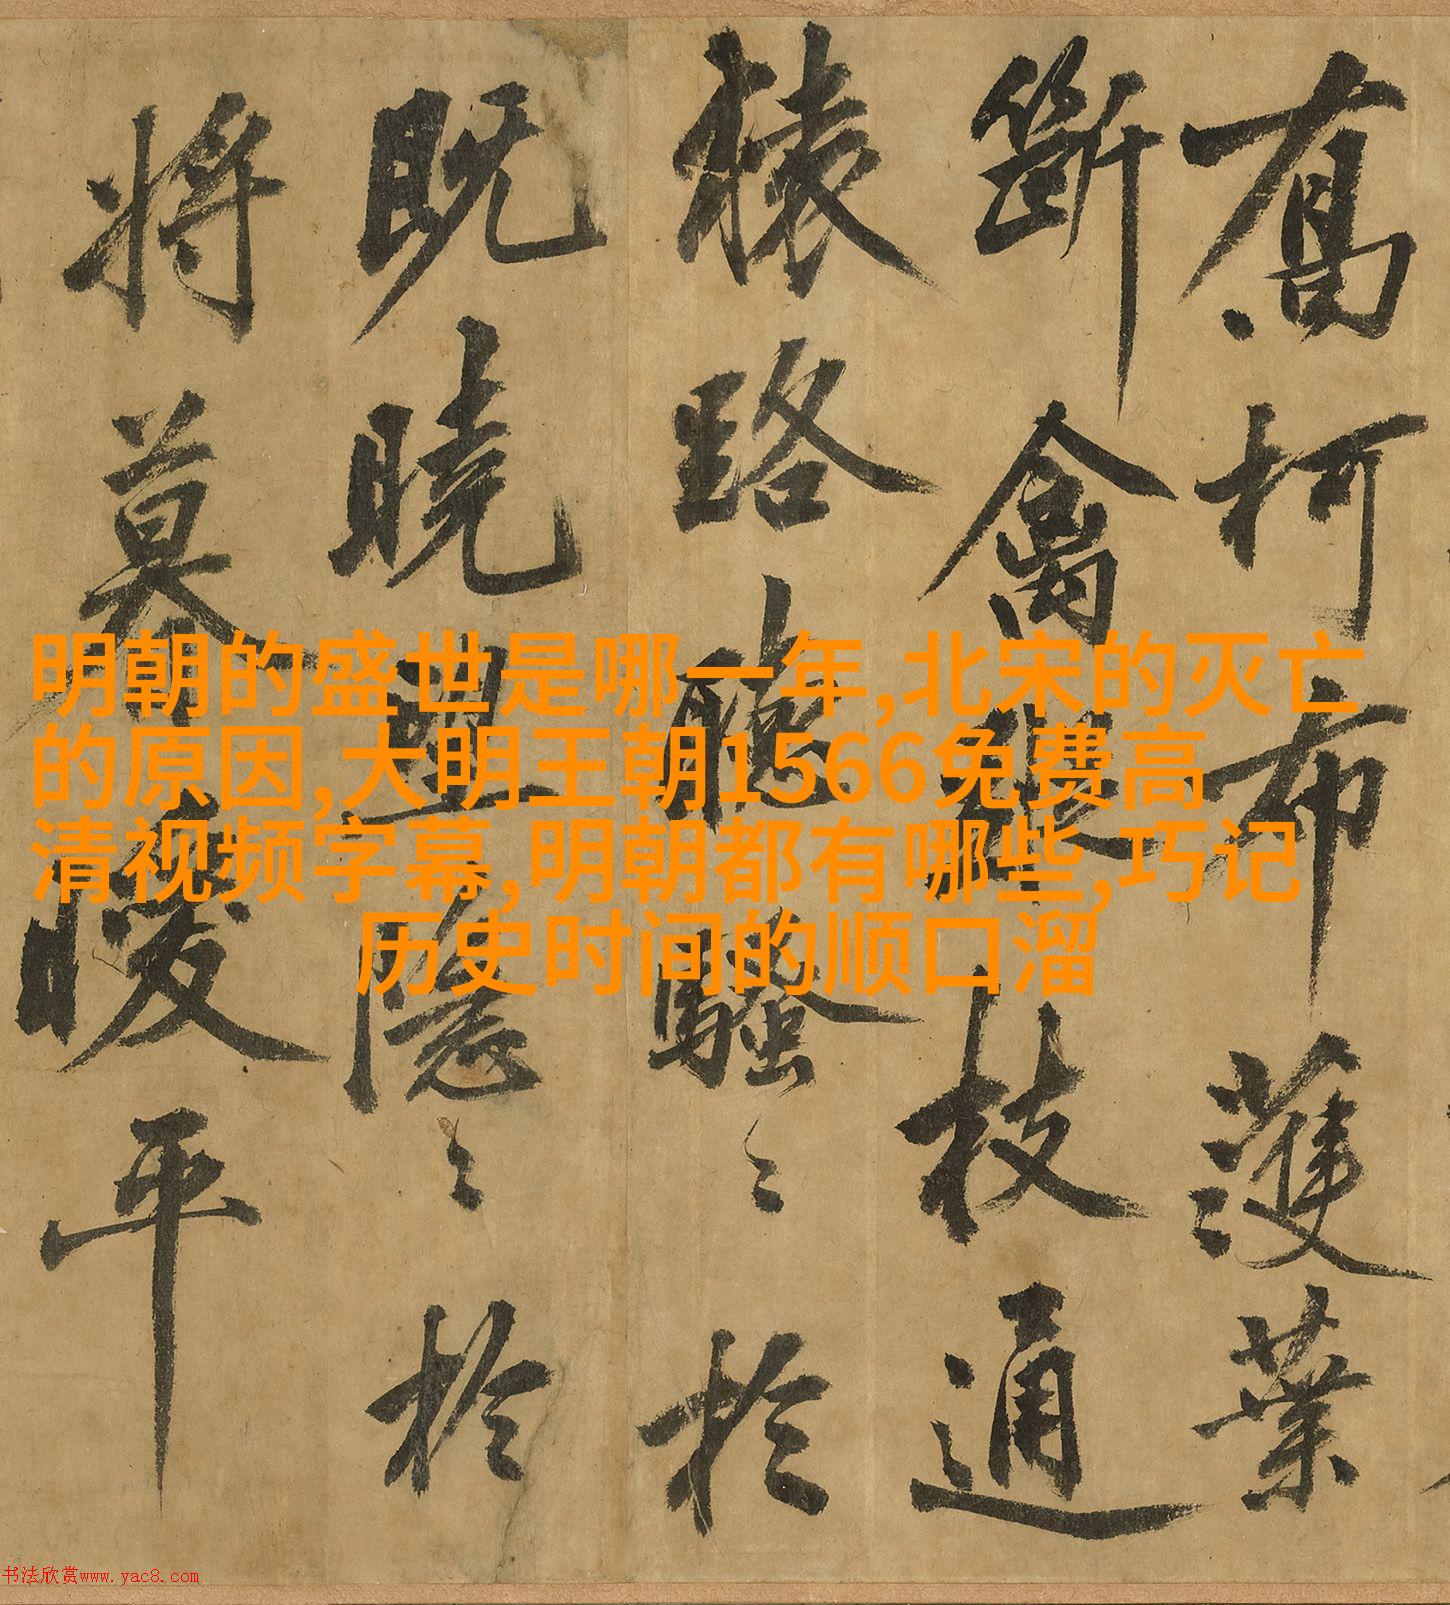 明朝的盛世是哪一年,北宋的灭亡
的原因,大明王朝1566免费高
清视频字幕,明朝都有哪些,巧记
历史时间的顺口溜
柯布濩葉
斷禽枝通
猿路聽騷〻於
既曉隱〻於
將暮暖平
书法欣赏www.yac8.com